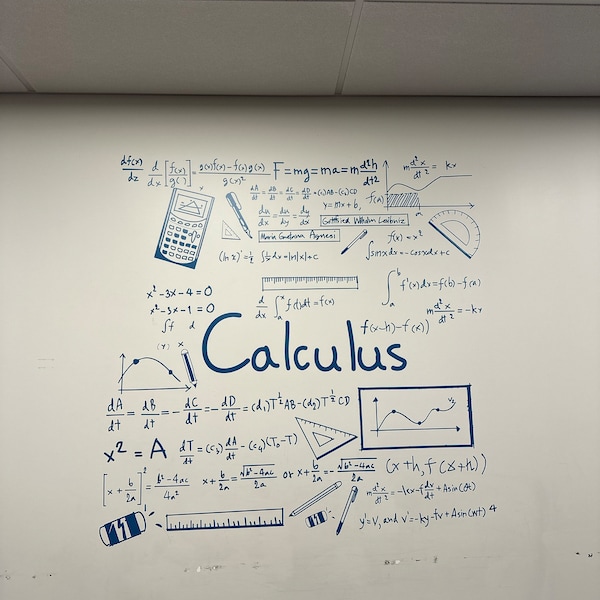 df(x)/dz d/dx [f(x)/g( )] = g(x)f(x)-f(x)g(x)/g(x)² F=mg=ma=m d²h/dt2 m d²x/dt² = kx
dA/dt = dB/dt = dC/dt = dD/dt =(c₁)AB-(c₂)CD
y=mx+b, f(a)
du/dx = du/dy = dy/dx Gottfried Wilhelm Leibniz
Maria Gaetana Agnesi f(x)=x²
(ln x)'=½ ∫½dx=ln|x|+c ∫sinxdx=-cosxdx+c
x²-3x-4=0 ∫ₐᵇ f'(x)dx=f(b)-f(a)
x²-3x-1=0 d/dx ∫ₐˣ f(t)dt=f(x) m d²x/dt² = -kx
∫f d f(x-h)-f(x))
(Y) x
Calculus
dA/dt = dB/dt = -dC/dt = -dD/dt = (d₁)T^½AB-(d₂)T^½CD
x²=A dT/dt=(c₃)dA/dt-(c₄)(T₀-T)
[x+b/2a]²=b²-4ac/4a² x+b/2a=√b²-4ac/2a or x+b/2a=-√b²-4ac/2a (x+h,f(x+h))
m d²x/dt²=-kx-f dx/dt+Asin(
y'=v, and v'=-ky-fv+Asin(wt) 4